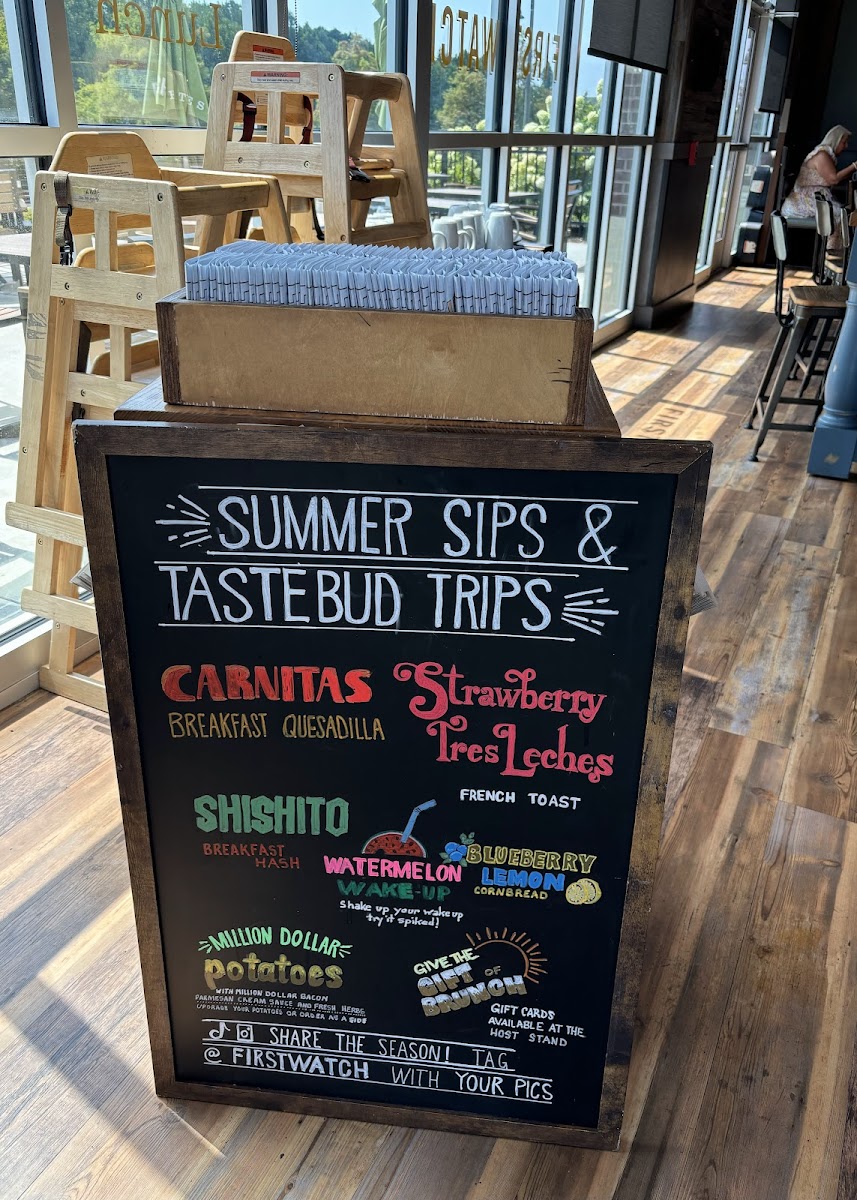 Lunch
FIRST WATC
SUMMER SIPS &
TASTEBUD TRIPS
CARNITAS
BREAKFAST QUESADILLA
Strawberry
Tres Leches
FRENCH TOAST
SHISHITO
BREAKFAST
HASH
WATERMELON
WAKE-UP
Shake up your wake up
try it spiked!
BLUEBERRY
LEMON
CORNBREAD
MILLION DOLLAR
potatoes
WITH MILLION DOLLAR BACON
PARMESAN CREAM SAUCE AND FRESH HERBS
UPGRADE YOUR POTATOES OR ORDER AS A SIDE
GIVE THE
GIFT OF
BRUNCH
GIFT CARDS
AVAILABLE AT THE
HOST STAND
SHARE THE SEASON! TAG
@ FIRSTWATCH WITH YOUR PICS